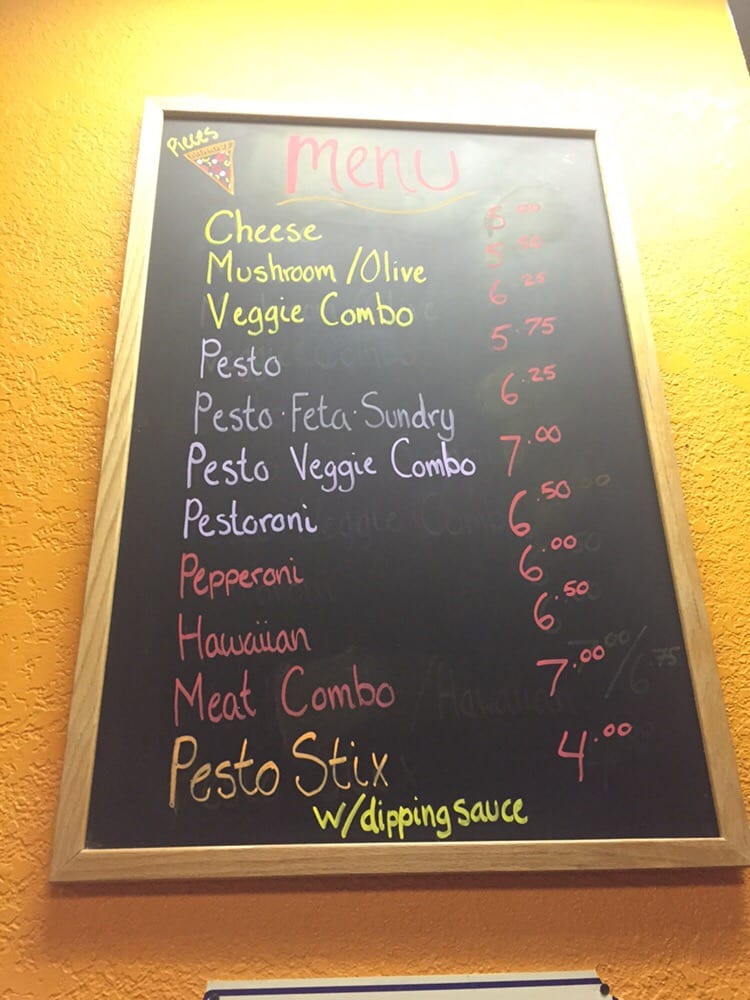 Pieces
Menu
Cheese 5.00
Mushroom/Olive 5.50
Veggie Combo 6.25
Pesto 5.75
Pesto·Feta·Sundry 6.25
Pesto Veggie Combo 7.00
Pestoroni 6.50
Pepperoni 6.00
Hawaiian 6.50
Meat Combo 7.00
Pesto Stix 4.00
w/dipping sauce